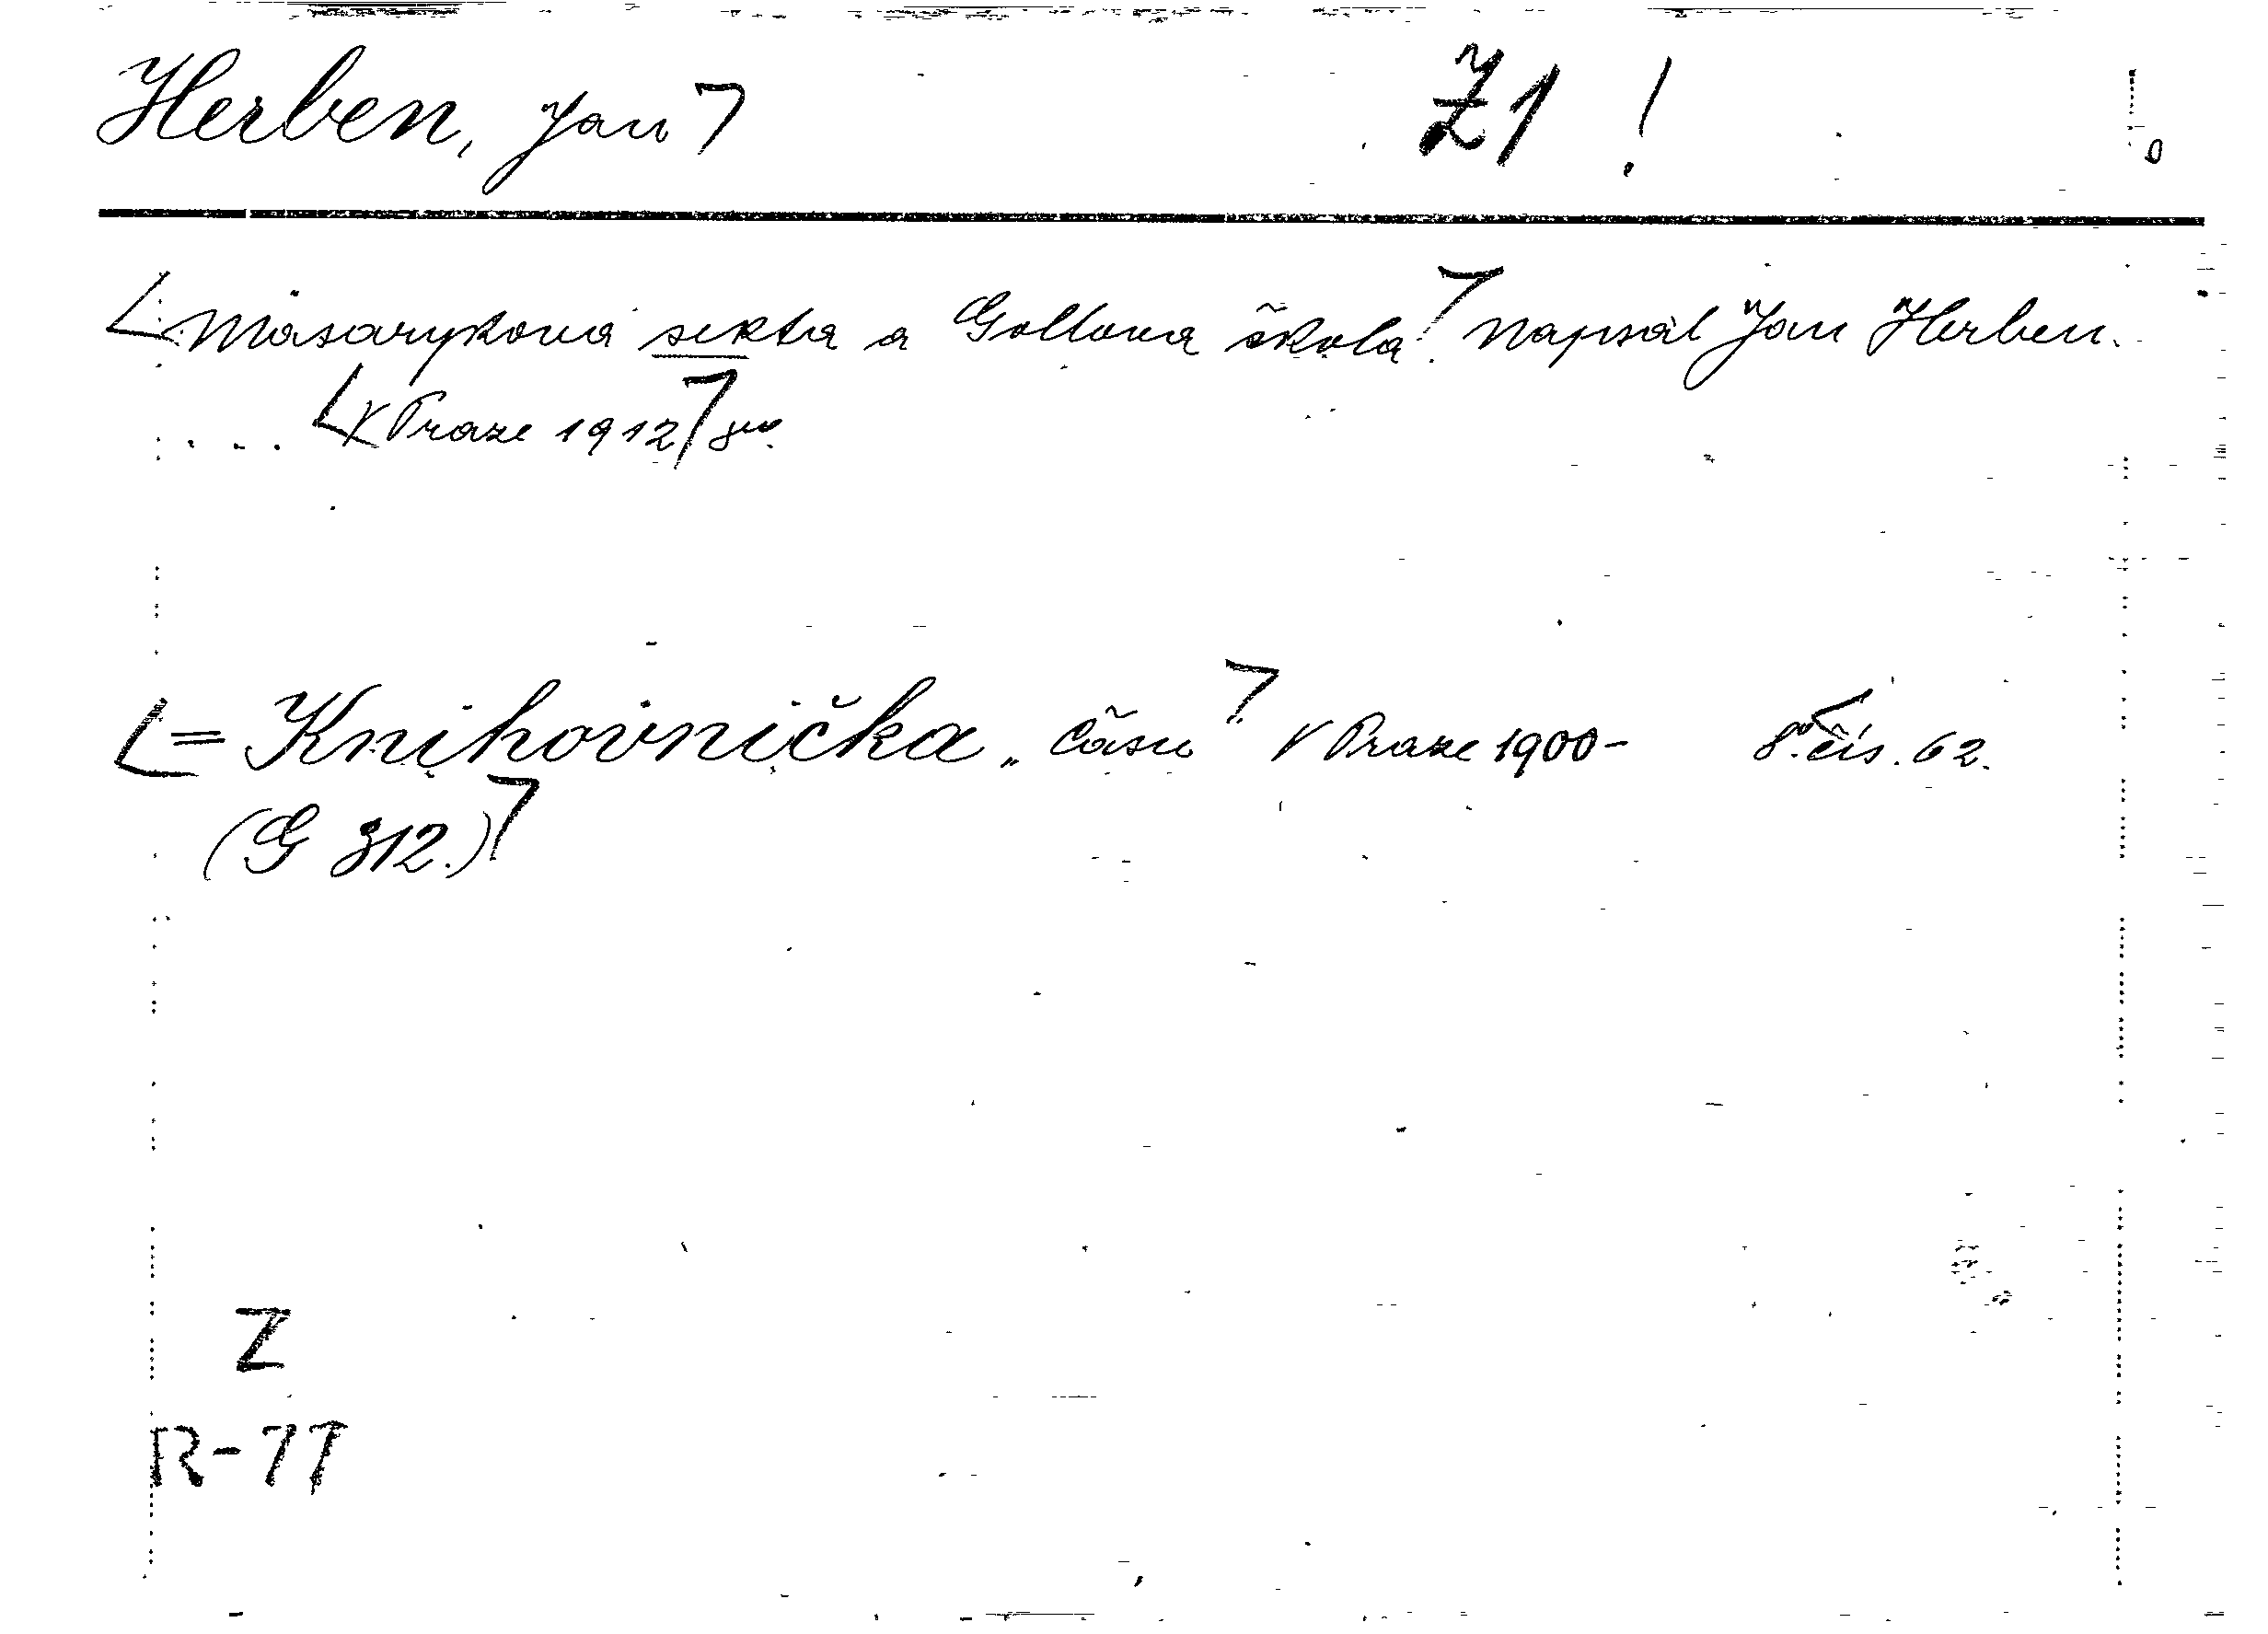 Herben, Jan Z1 !
Masarykova sekta a Gollova škola. Napsal Jan Herben.
.... V Praze 1912 8vo.
= Knihovnička „Času“ V Praze 1900- 8vo. čís. 62.
(G 312.)
Z
R-77